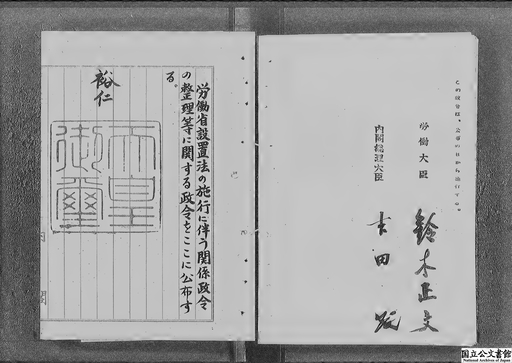 労働省設置法の施行に伴う関係政令
の整理等に関する政令をここに公布す
る。
裕仁
天皇
御璽
この政令は、公布の日から施行する。
労働大臣
鈴木正文
内閣総理大臣
吉田茂
国立公文書館
National Archives of Japan